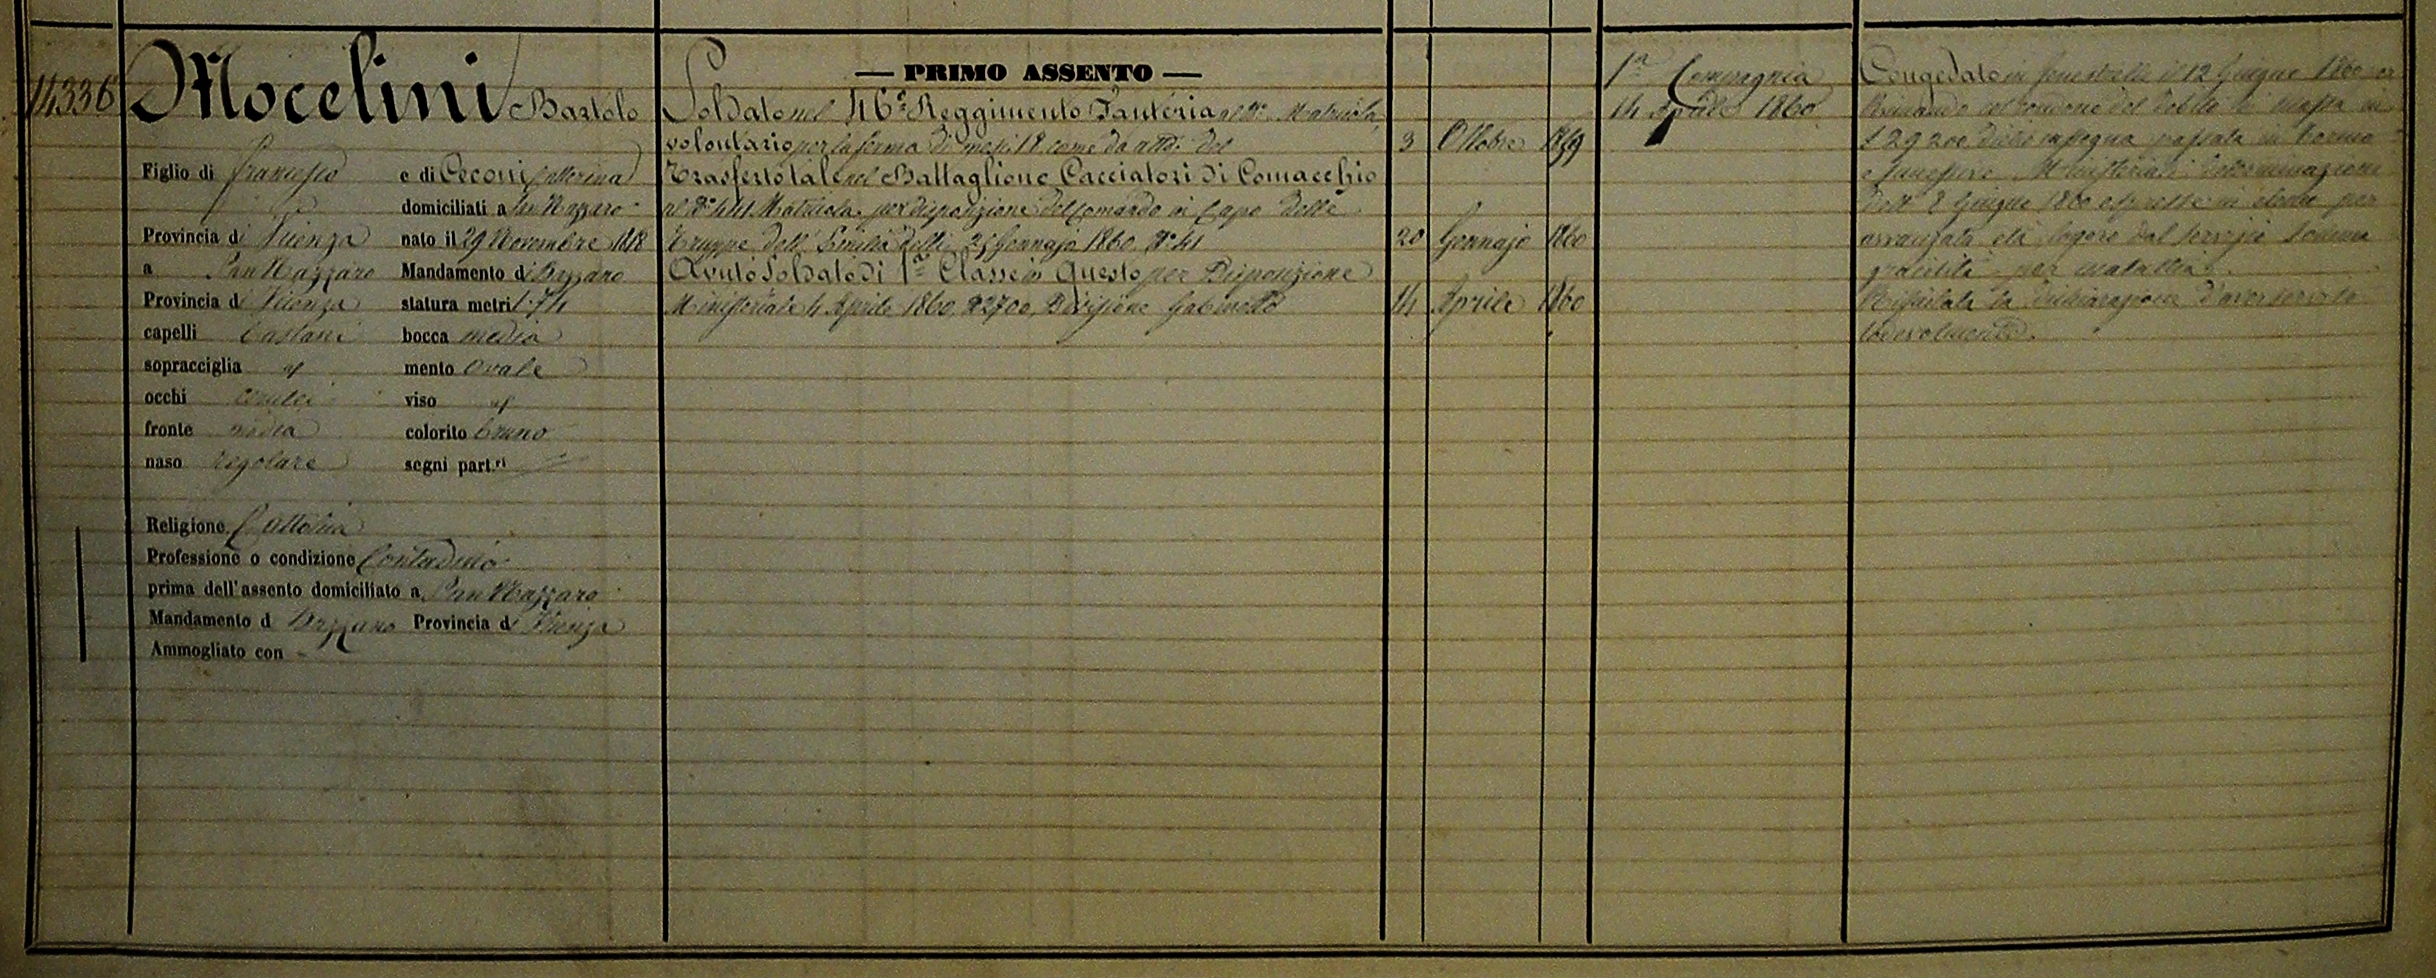 14336
Mocelini Bartolo
Figlio di Francesco e di Ceconi Catterina
domiciliati a San Nazzaro
Provincia di Vicenza nato il 29 Novembre 1818
a San Nazzaro Mandamento di Bazzano
Provincia di Vicenza statura metri 1.74
capelli Castani bocca media
sopracciglia id mento Ovale
occhi cerulei viso id
fronte media colorito bruno
naso Regolare segni part.ri
Religione Cattolica
Professione o condizione Contadino
prima dell'assento domiciliato a San Nazzaro
Mandamento d Bazzano Provincia di Vicenza
Ammogliato con -
— PRIMO ASSENTO —
Soldato nel 46° Reggimento Fanteria al N° Matricola
volontario per la ferma di mesi 18 come da atto del 3 Ottobre 1859
Trasferto tale nel Battaglione Cacciatori di Comacchio
al N° 441 Matricola per disposizione del Comando in Capo delle
Truppe dell'Emilia delli 25 Gennajo 1860 N° 41 20 Gennajo 1860
Avuto Soldato di 1a Classe in Questo per Disposizione
Ministeriale 4 Aprile 1860 N 2700 Divisione Gabinetto 14 Aprile 1860
1a Compagnia
14 Aprile 1860
Congedato in Fenestrelle il 12 Giugno 1860
Rimando col condono del debito di massa in
e successive Ministeriali determinazione
dell' 8 Giugno 1860
avanzata età logoro dal servizio somma
gracilità per malattia.
Rifiutata la dichiarazione d'aver servito
lodevolmente.